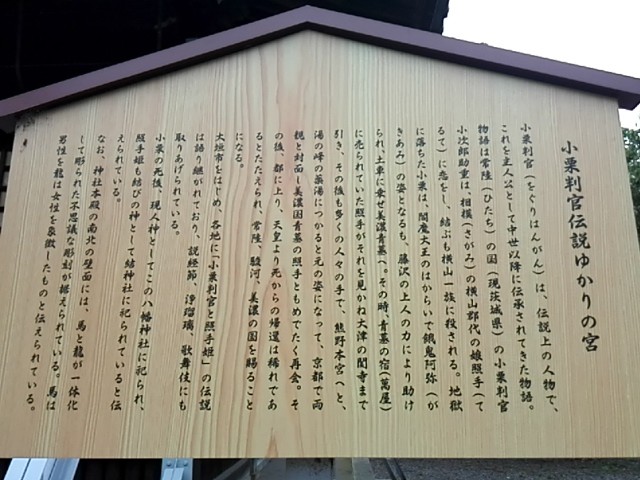 小栗判官伝説ゆかりの宮
小栗判官（をぐりはんがん）は、伝説上の人物で、
これを主人公として中世以降に伝承されてきた物語。
物語は常陸（ひたち）の国（現茨城県）の小栗判官
小次郎助重は、相模（さがみ）の横山郡代の娘照手（て
るて）に恋をし、結ぶも横山一族に殺される。地獄
に落ちた小栗は、閻魔大王のはからいで餓鬼阿弥（が
きあみ）の姿となるも、藤沢の上人の力により助け
られ、土車に乗せ美濃青墓へ。その時、青墓の宿（萬屋）
に売られていた照手がそれを見かね大津の関寺まで
引き、その後も多くの人々の手で、熊野本宮へと、
湯の峰の薬湯につかると元の姿になって、京都で両
親と対面し美濃国青墓の照手ともめでたく再会。そ
の後、都に上り、天皇より死からの帰還は稀れであ
るとたたえられ、常陸、駿河、美濃の国を賜ること
になる。
大垣市をはじめ、各地に「小栗判官と照手姫」の伝説
は語り継がれており、説経節、浄瑠璃、歌舞伎にも
取りあげられている。
小栗の死後、現人神としてこの八幡神社に祀られ、
照手姫も結びの神として結神社に祀られていると伝
えられている。
なお、神社本殿の南北の壁面には、馬と龍が一体化
して彫られた不思議な彫刻が据えられている。馬は
男性を龍は女性を象徴したものと伝えられている。